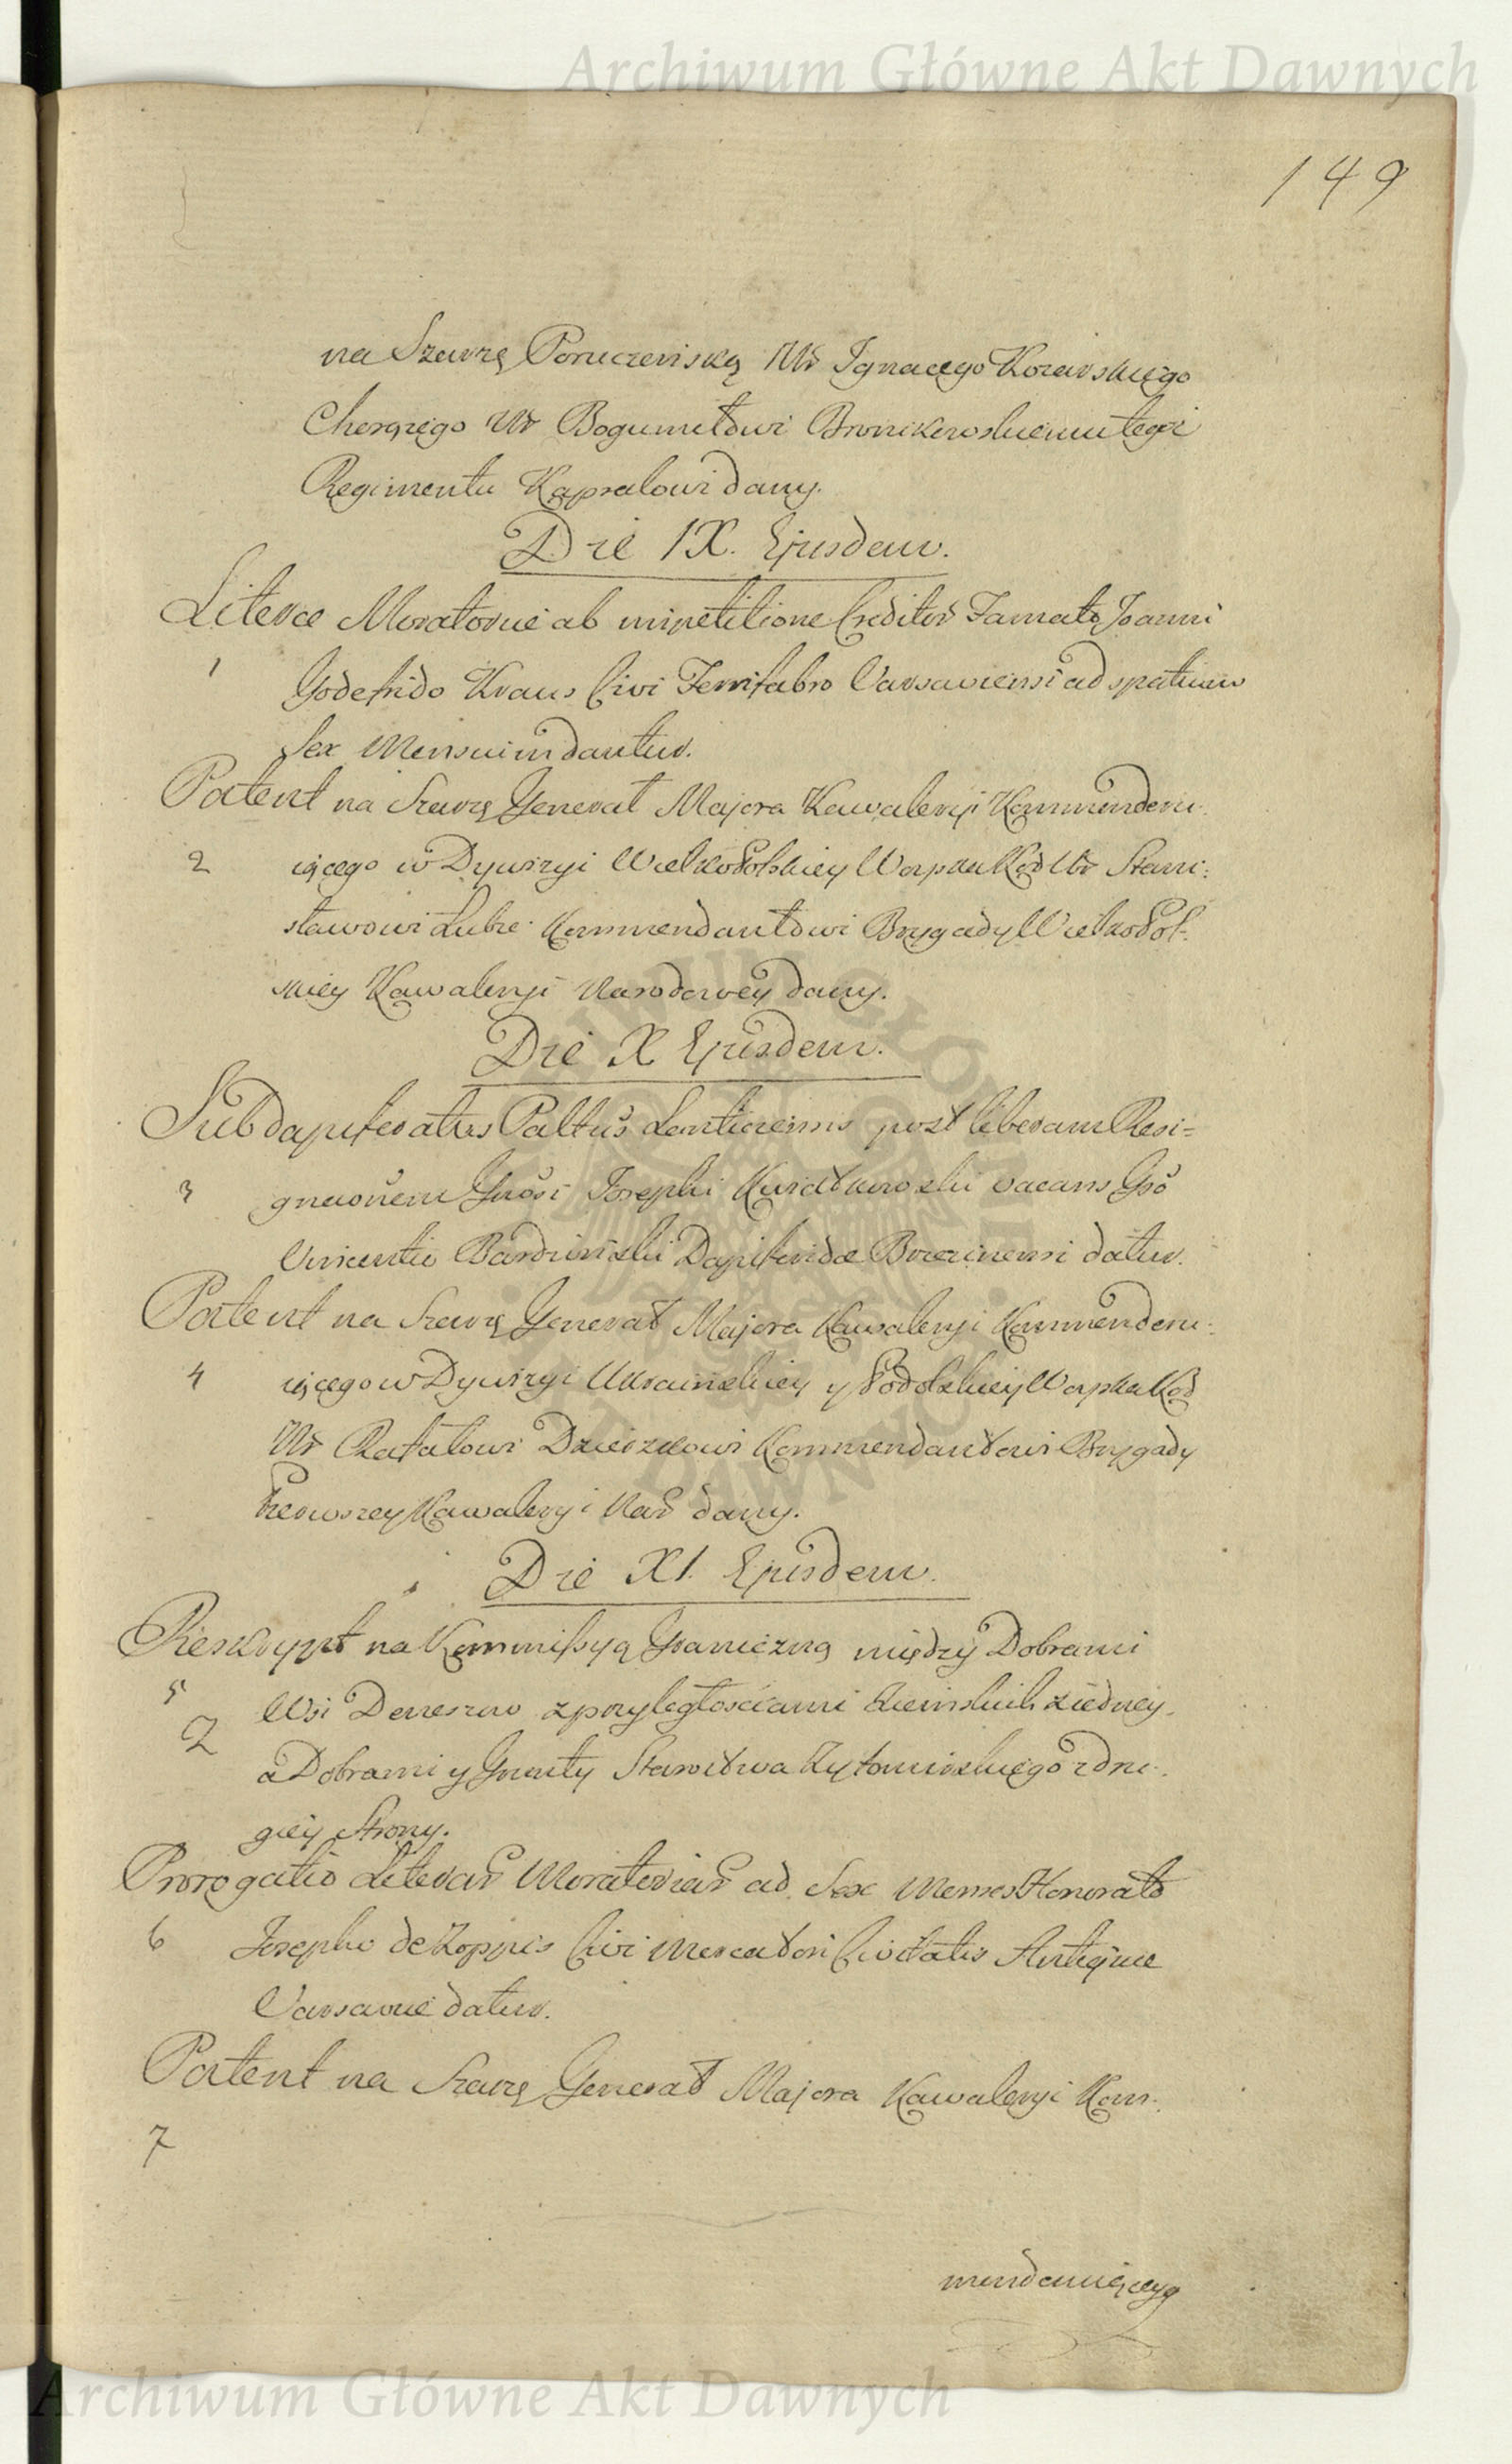 Archiwum Główne Akt Dawnych
149
na Szarżę Poruczeńską Ur Ignacego Kozarskiego
Chorążego Ur Bogumiłowi Bronikowskiemu tegoż
Regimentu Kapralowi dany.
Die IX. Ejusdem.
Literæ Moratoriæ ab impetitione Creditor Famato Joanni
1 Godefrido Kraus Civi Ferrifabro Varsaviensi ad spatium
Sex Mensium dantur.
Patent na Szarżę Generał Majora Kawaleryi Kommenderu-
2 iącego w Dywizyi Wielkopolskiey Woyska Kor Ur Stani-
sławowi Lubie Kommendantowi Brygady Wielkopol-
skiey Kawaleryi Narodowey dany.
Die X Ejusdem.
Subdapiferatus Paltus Lanciciensis post liberam Resi=
3 gnaonem Gnosi Josephi Kwiatkowski vacans Gso
Vincentio Bardziński Dapiferidæ Brzezinensi datur.
Patent na Szarżę Generał Majora Kawaleryi Kommenderu-
4 iącego w Dywizyi Ukrainskiey y Podolskiey Woyska Kor
Ur Rafałowi Dzierżkowi Kommendantowi Brygady
Pierwszey Kawaleryi Nar dany.
Die XI. Ejusdem.
Reskrypt na Kommissyą Graniczną między Dobrami
5 Wsi Deneszow z przyległościami Ziemskich z iedney,
2 a Dobrami y Grunty Starostwa Zytomirskiego z dru-
giey Strony.
Prorogatio Literar Moratoriar ad Sex Menses Honorato
6 Josepho de Zoppis Civi Mercatori Civitatis Antiquæ
Varsaviæ datur.
Patent na Szarżę Generał Majora Kawaleryi Kom-
7
menderuiącego
Archiwum Główne Akt Dawnych